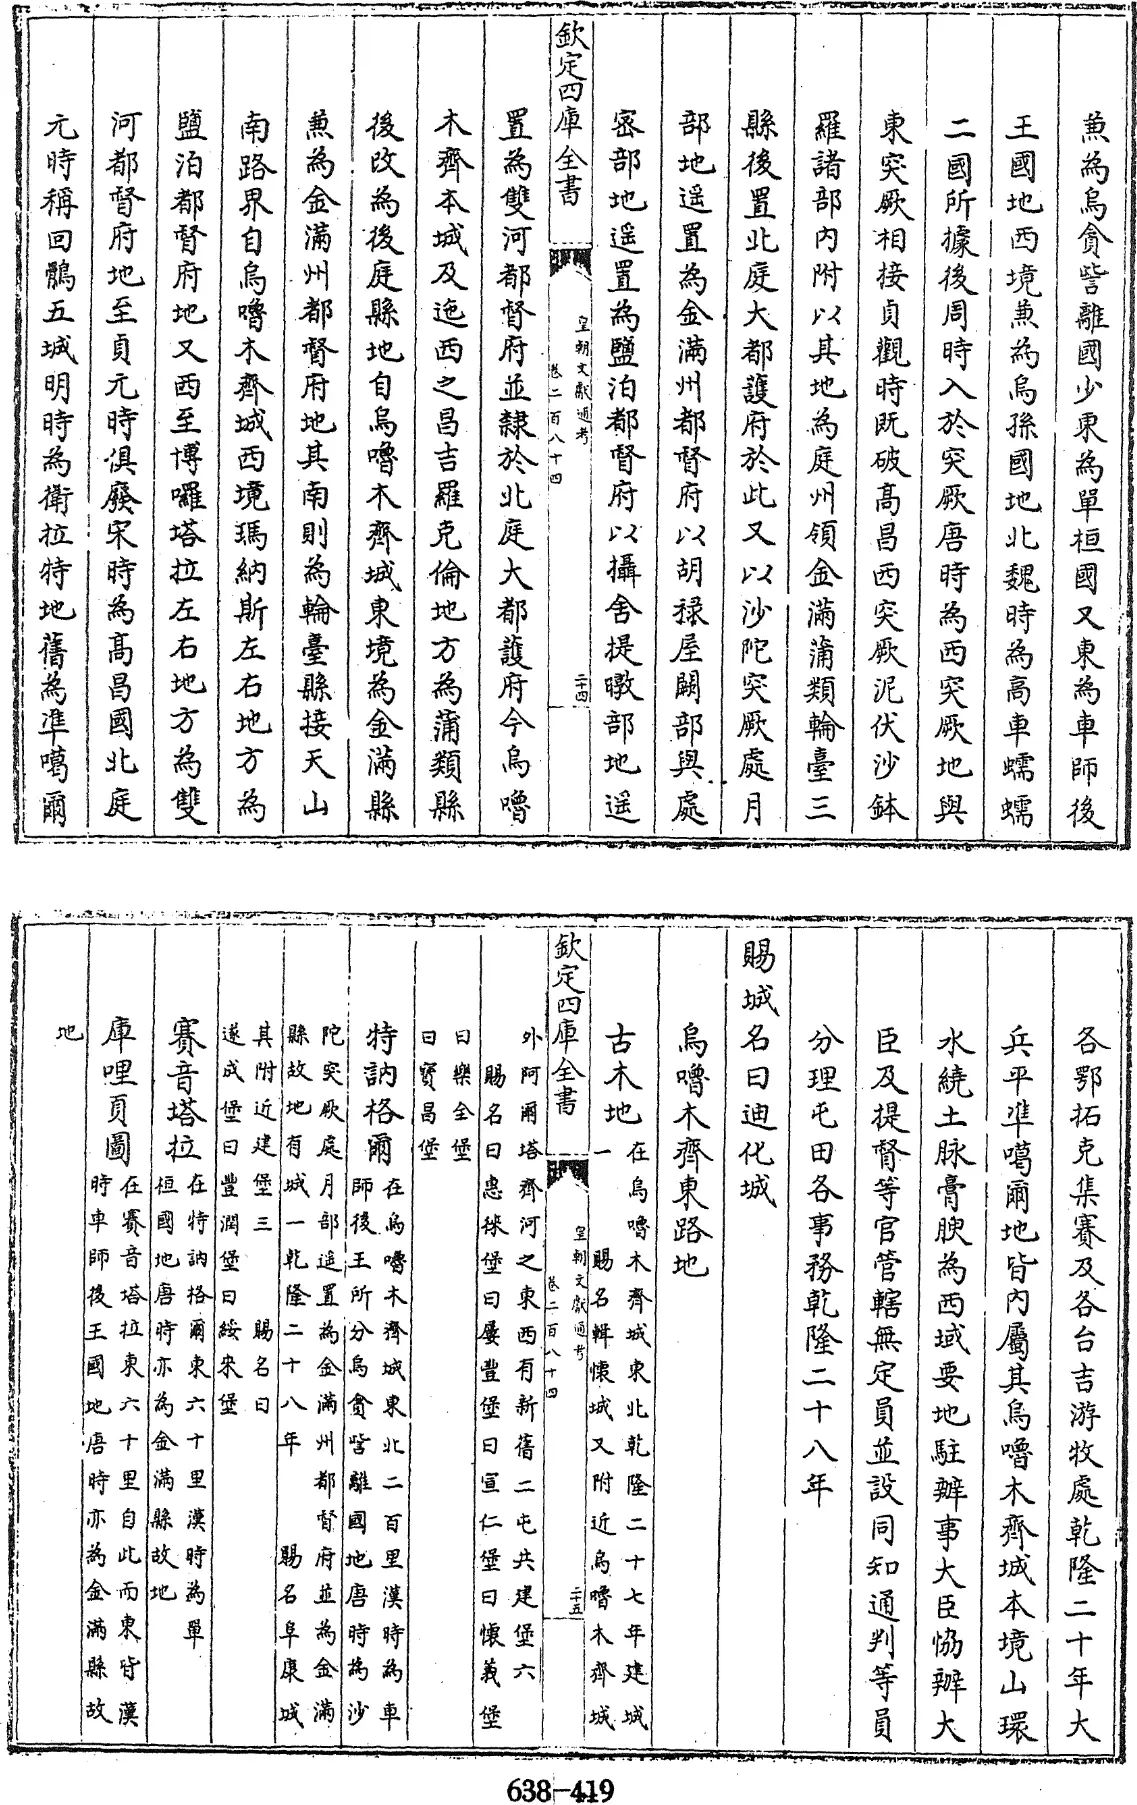 兼為烏貪訾離國少東為單桓國又東為車師後
王國地西境兼為烏孫國地北魏時為高車蠕蠕
二國所據後周時入於突厥唐時為西突厥地與
東突厥相接貞觀時既破高昌西突厥泥伏沙鉢
羅諸部内附以其地為庭州領金滿蒲類輪臺三
縣後置北庭大都護府於此又以沙陀突厥處月
部地遥置為金滿州都督府以胡禄屋闕部與處
密部地遥置為鹽泊都督府以攝舍提暾部地遥
欽定四庫全書
皇朝文獻通考
卷二百八十四
二十四
置為雙河都督府並隸於北庭大都護府今烏嚕
木齊本城及迤西之昌吉羅克倫地方為蒲類縣
後改為後庭縣地自烏嚕木齊城東境為金滿縣
兼為金滿州都督府地其南則為輪臺縣接天山
南路界自烏嚕木齊城西境瑪納斯左右地方為
鹽泊都督府地又西至博囉塔拉左右地方為雙
河都督府地至貞元時俱廢宋時為高昌國北庭
元時稱回鶻五城明時為衛拉特地舊為準噶爾
各鄂拓克集賽及各台吉游牧處乾隆二十年大
兵平準噶爾地皆内屬其烏嚕木齊城本境山環
水繞土脉膏腴為西域要地駐辦事大臣協辦大
臣及提督等官管轄無定員並設同知通判等員
分理屯田各事務乾隆二十八年
賜城名曰迪化城
烏嚕木齊東路地
古木地
在烏嚕木齊城東北乾隆二十七年建城
一 賜名輯懷城又附近烏嚕木齊城
欽定四庫全書
皇朝文獻通考
卷二百八十四
二十五
外阿爾塔齊河之東西有新舊二屯共建堡六
賜名曰惠徠堡曰屢豐堡曰宣仁堡曰懷義堡
曰樂全堡
曰寶昌堡
特訥格爾
在烏嚕木齊城東北二百里漢時為車
師後王所分烏貪訾離國地唐時為沙
陀突厥處月部遥置為金滿州都督府並為金滿
縣故地有城一乾隆二十八年 賜名阜康城
其附近建堡三 賜名曰
遂成堡曰豐潤堡曰綏來堡
賽音塔拉
在特訥格爾東六十里漢時為單
桓國地唐時亦為金滿縣故地
庫哩頁圖
在賽音塔拉東六十里自此而東皆漢
時車師後王國地唐時亦為金滿縣故
地
638-419